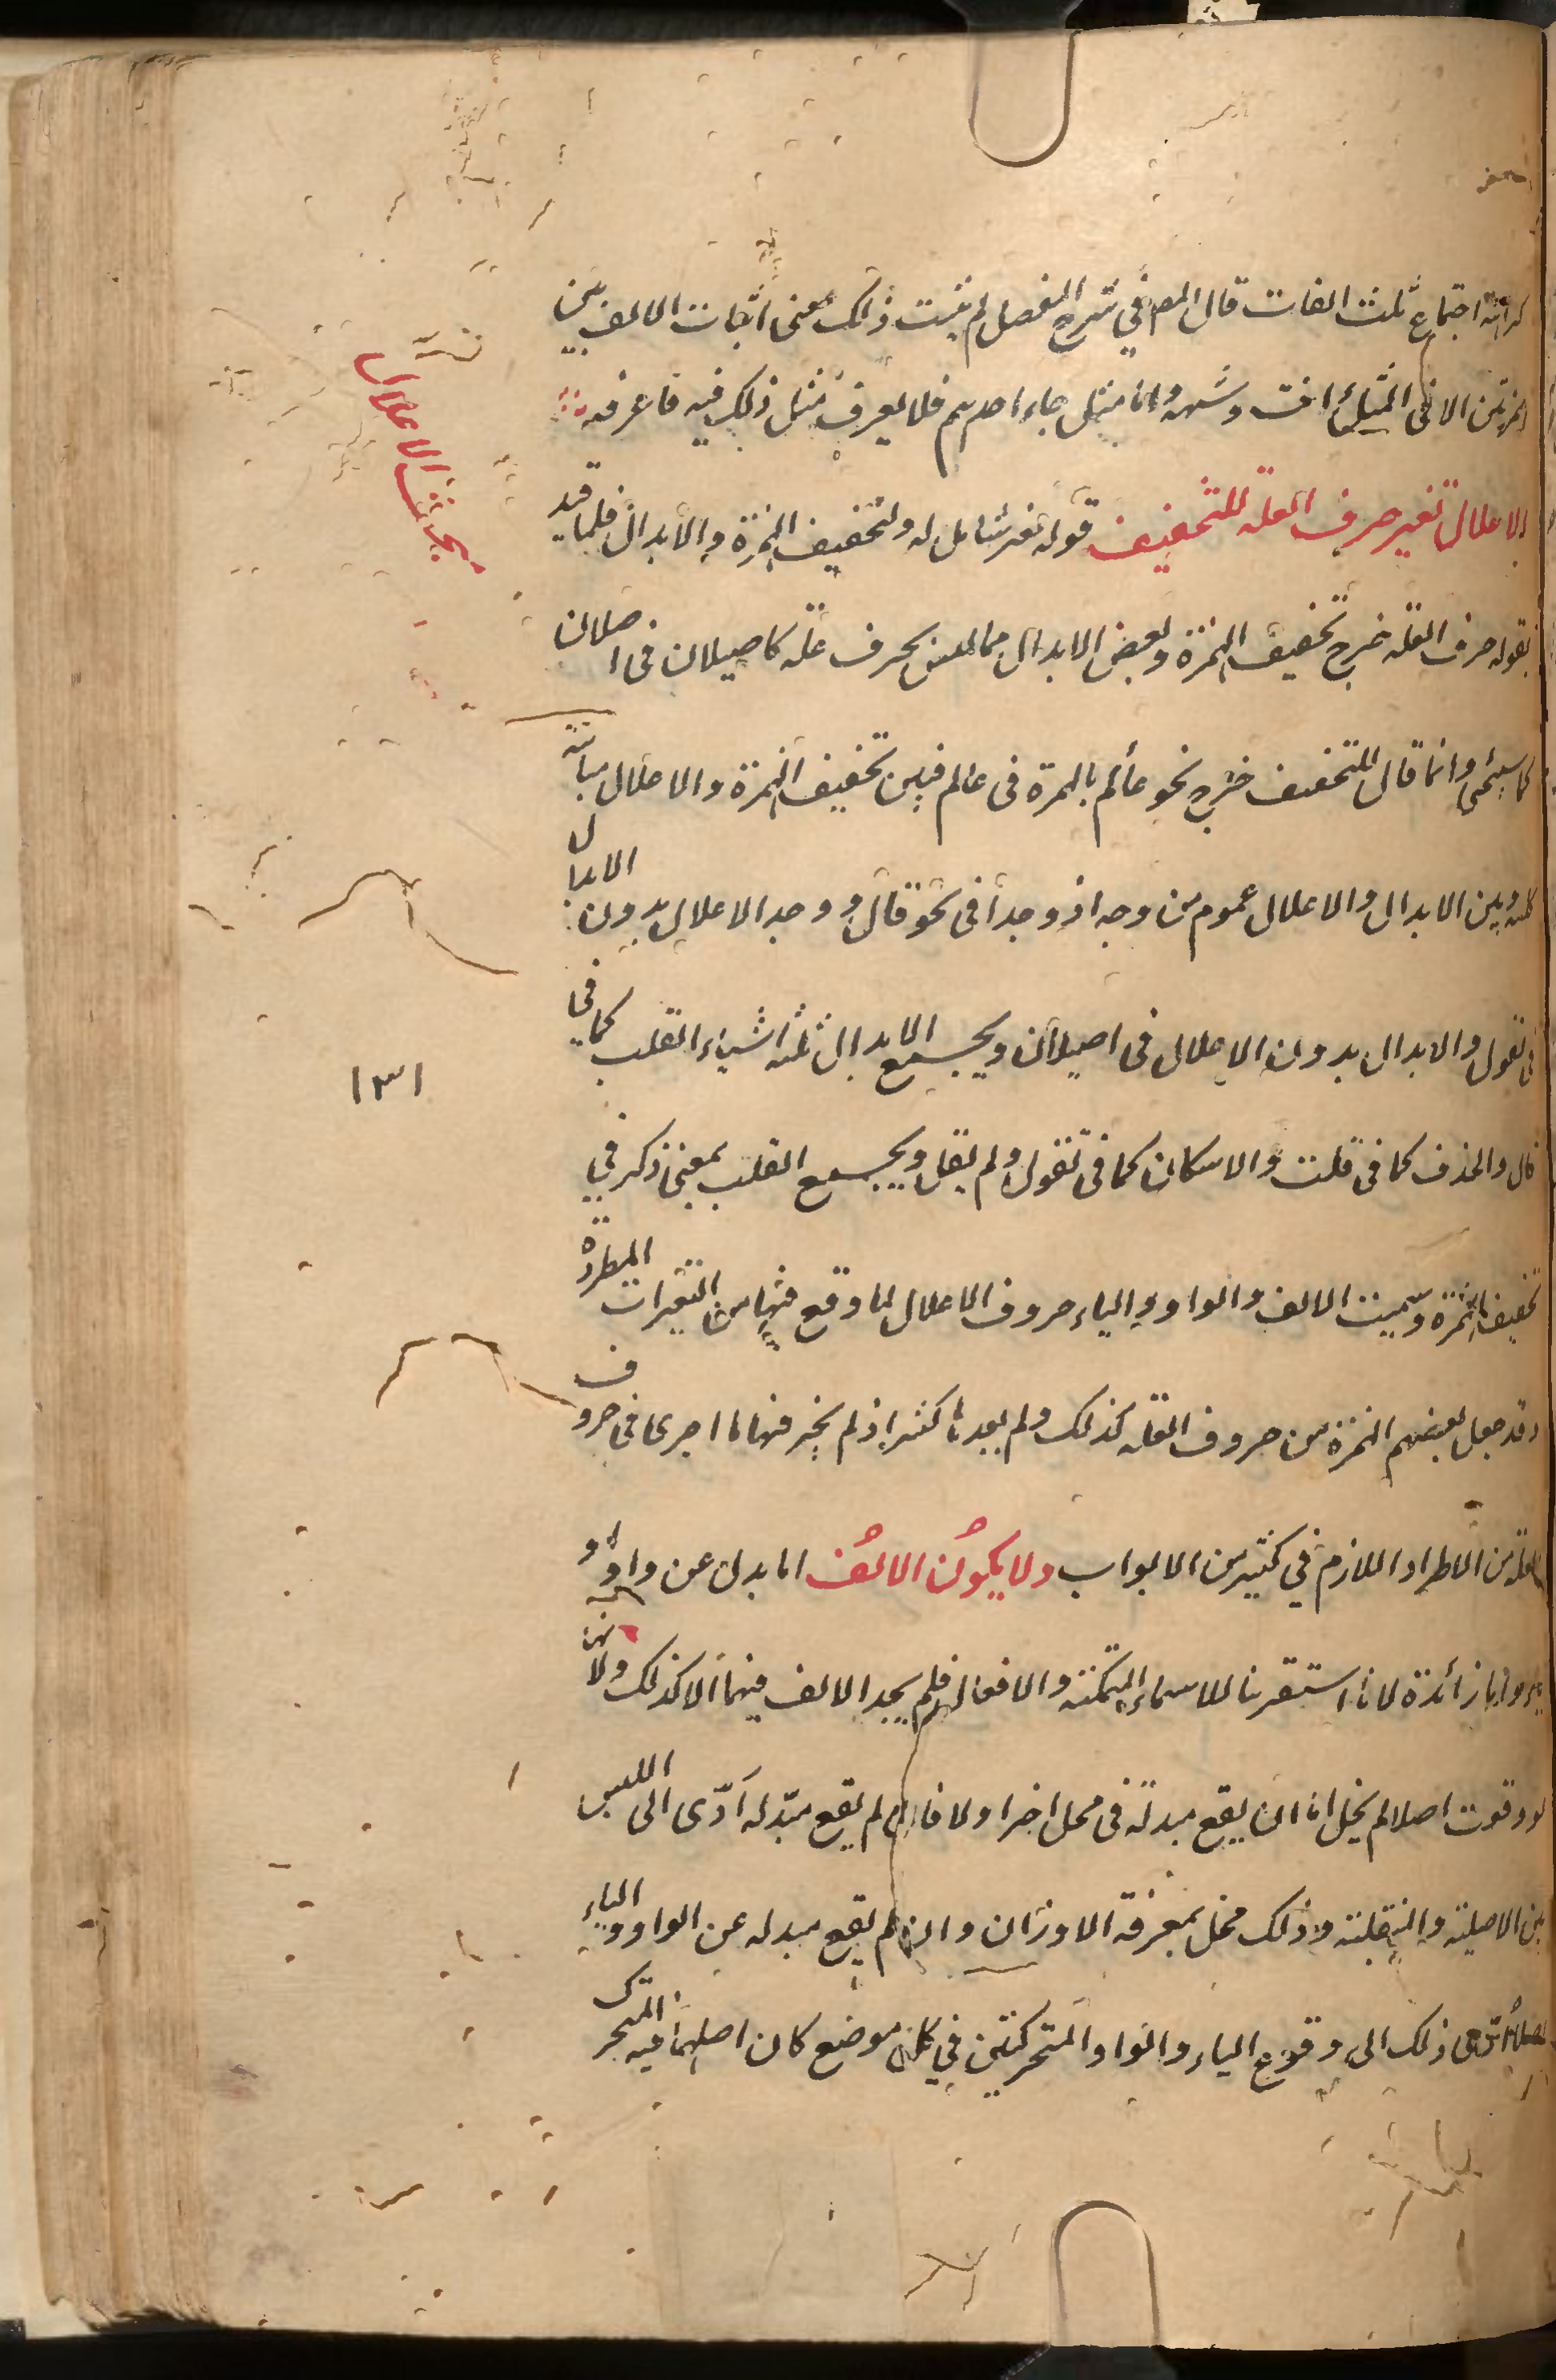 كراهة اجتماع ثلث الفات قال المص في شرح المفصل لم يثبت ذلك بمعنى اثبات الالف بين
الهمزتين الا في المثل أانت وشبهه واما مثل جاء احدهم فلا يعرف مثل ذلك فيه فاعرفه
الاعلال تغيير حرف العلة للتخفيف قوله تغيير شامل له ولتخفيف الهمزة والابدال فلما قيد
بقوله حرف العلة خرج تخفيف الهمزة وبعض الابدال مما ليس بحرف علة كاصيلان في اصيلال
كما سيجئ وانما قال للتخفيف خرج نحو عألم بالهمزة في عالم فبين تخفيف الهمزة والاعلال مباينة
كلية وبين الابدال والاعلال عموم من وجه اذ وجدا في نحو قال ووجد الاعلال بدون الابدال
في تقول والابدال بدون الاعلال في اصيلان ويجمع الابدال ثلثة اشياء القلب كما في
قال والحذف كما في قلت والاسكان كما في تقول ولم يقل ويجمع القلب بمعنى ذكر في
تخفيف الهمزة وسميت الالف والواو والياء حروف الاعلال لما وقع فيها من التغيرات المطردة
وقد جعل بعضهم الهمزة من حروف العلة كذلك ولم يعدها كثير اذ لم يجر فيها ما اجرى في حروف
العلة من الاطراد اللازم في كثير من الابواب ولا يكون الالف الا بدل عن واو او
ياء واما زائدة لانا استقرينا للاسماء المتمكنة والافعال فلم يجد الالف فيهما الا كذلك ولانها
لو وقعت اصلا لم يخل اما ان يقع مبدلة في محل اخر او لا فان لم يقع مبدلة أدّى الى اللبس
بين الاصلية والمنقلبة وذلك مخل بمعرفة الاوزان وان لم يقع مبدلة عن الواو والياء
اصلا أدّى ذلك الى وقوع الياء والواو المتحركتين في كل موضع كان اصلهما فيه المتحرك
بحث الاعلال
١٣١